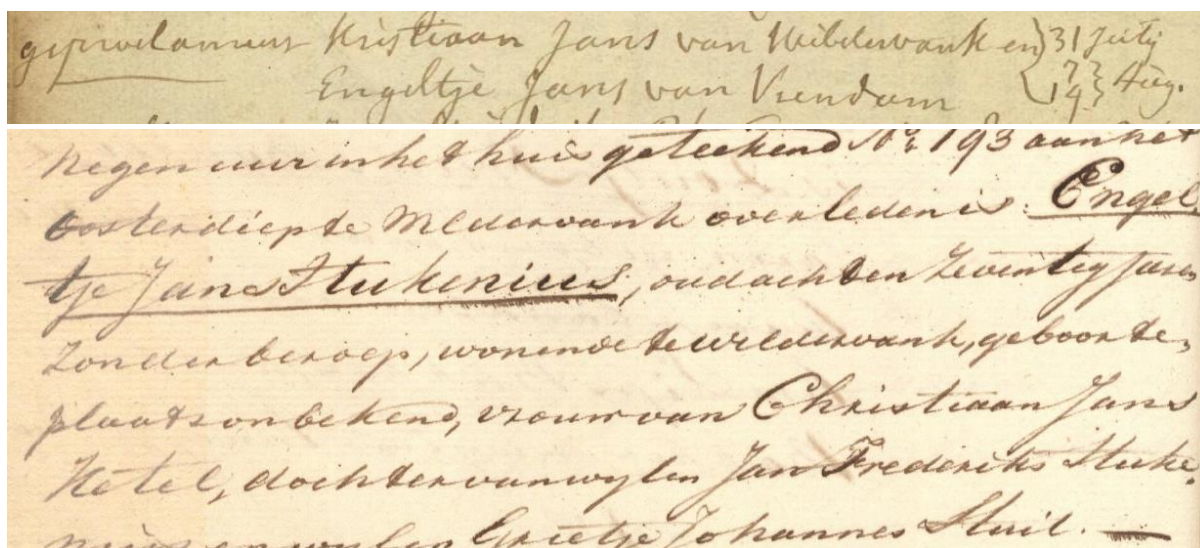 geproclameert Kristiaan Jans van Wildervank en } 31 July
Engeltje Jans van Veendam { 7 } 14 } Aug.
negen uur in het huis geteekend No. 193 aan het
Oosterdiep te Wildervank overleden is: Engel
tje Jans Stukenius, oud acht en zeventig Jaren
zonder beroep, wonende te Wildervank, geboorte,
plaats onbekend, vrouw van Christiaan Jans
Ketel, dochter van wylen Jan Frederiks Stuke,
nius en wylen Grietje Johannes Stuil. —